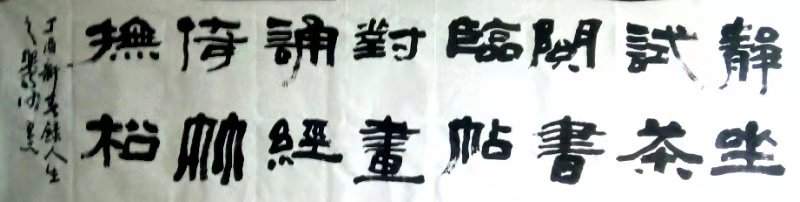 靜坐
試茶
閱書
臨帖
對畫
誦經
倚竹
撫松
丁酉新春錄人生
之樂